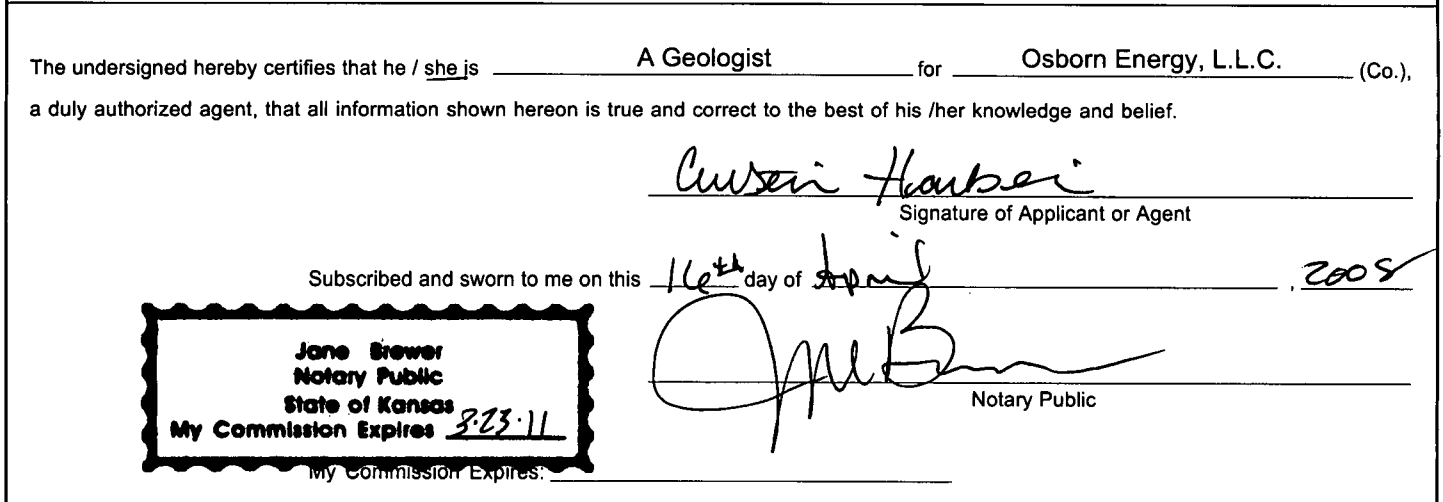 The undersigned hereby certifies that he / she is A Geologist for Osborn Energy, L.L.C. (Co.),
a duly authorized agent, that all information shown hereon is true and correct to the best of his /her knowledge and belief.
Signature of Applicant or Agent
Subscribed and sworn to me on this 16th day of April , 2008
Jane Brewer
Notary Public
State of Kansas
My Commission Expires 3-23-11
Notary Public
My Commission Expires: